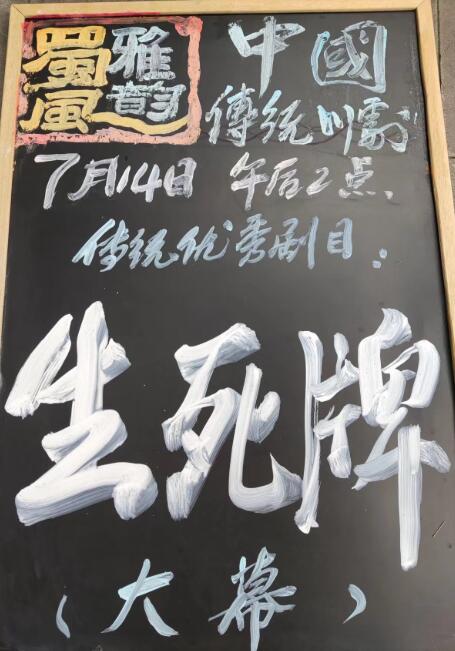 蜀風雅韵
中國
傳統川劇
7月14日 午后2点
传统优秀剧目:
生死牌
(大幕)